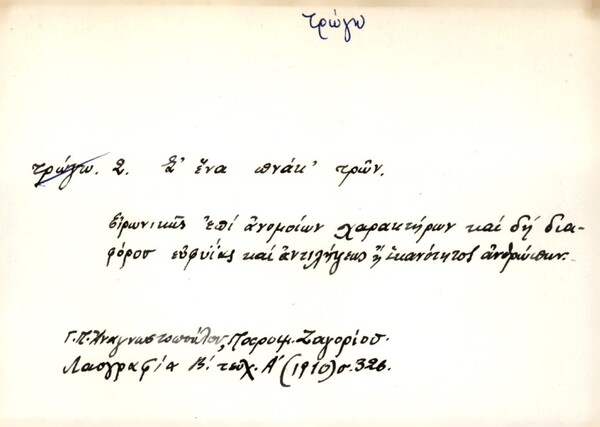 τρώγω
τρώγω. 2. Σ' ἕνα πνάκ' τρῶν.
εἰρωνικῶς ἐπί ἀνομοίων χαρακτήρων καί δή δια-
φόρου εὐφυΐας καί ἀντιλήψεως ἤ ἱκανότητος ἀνθρώπων.
Γ.Π. Ἀναγνωστοπούλου, Παροιμ. Ζαγορίου.
Λαογραφία Β'. τευχ. Α' (1910) σ. 326.